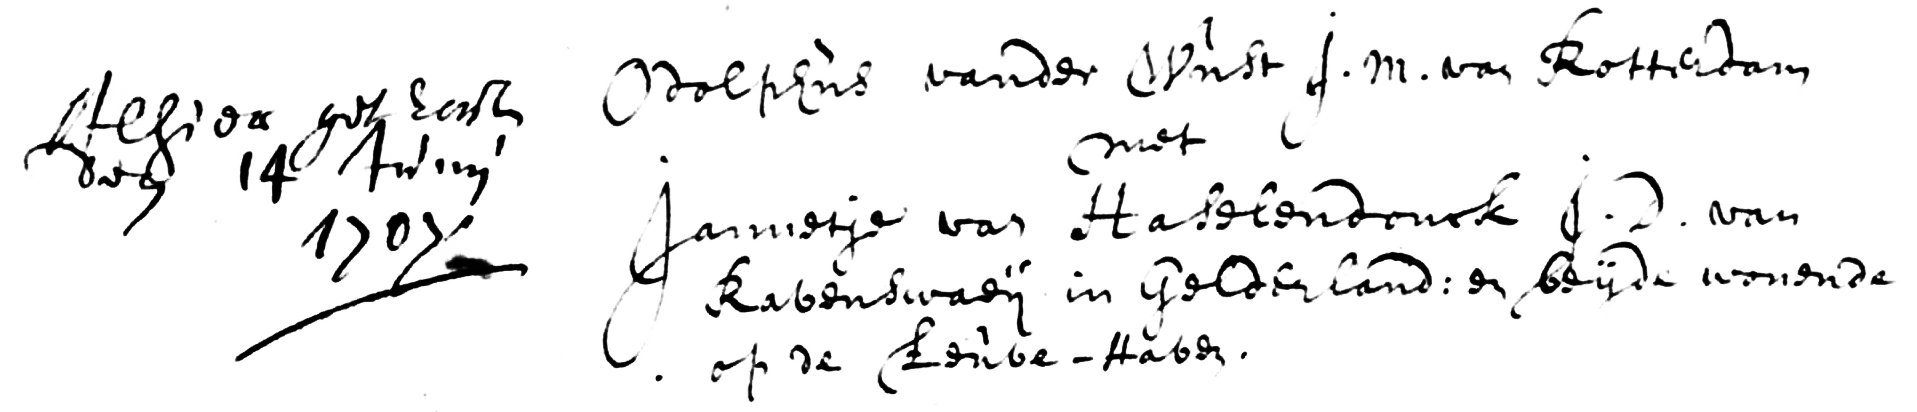 Alhier getrout
den 14 Junij
1707
Odolphus vander Wust J. M. van Rotterdam
met
Jannetje van Haselendonck J. D. van
Ravenswaeij in Gelderland: en beijde wonende
op de Leuve-Haven.